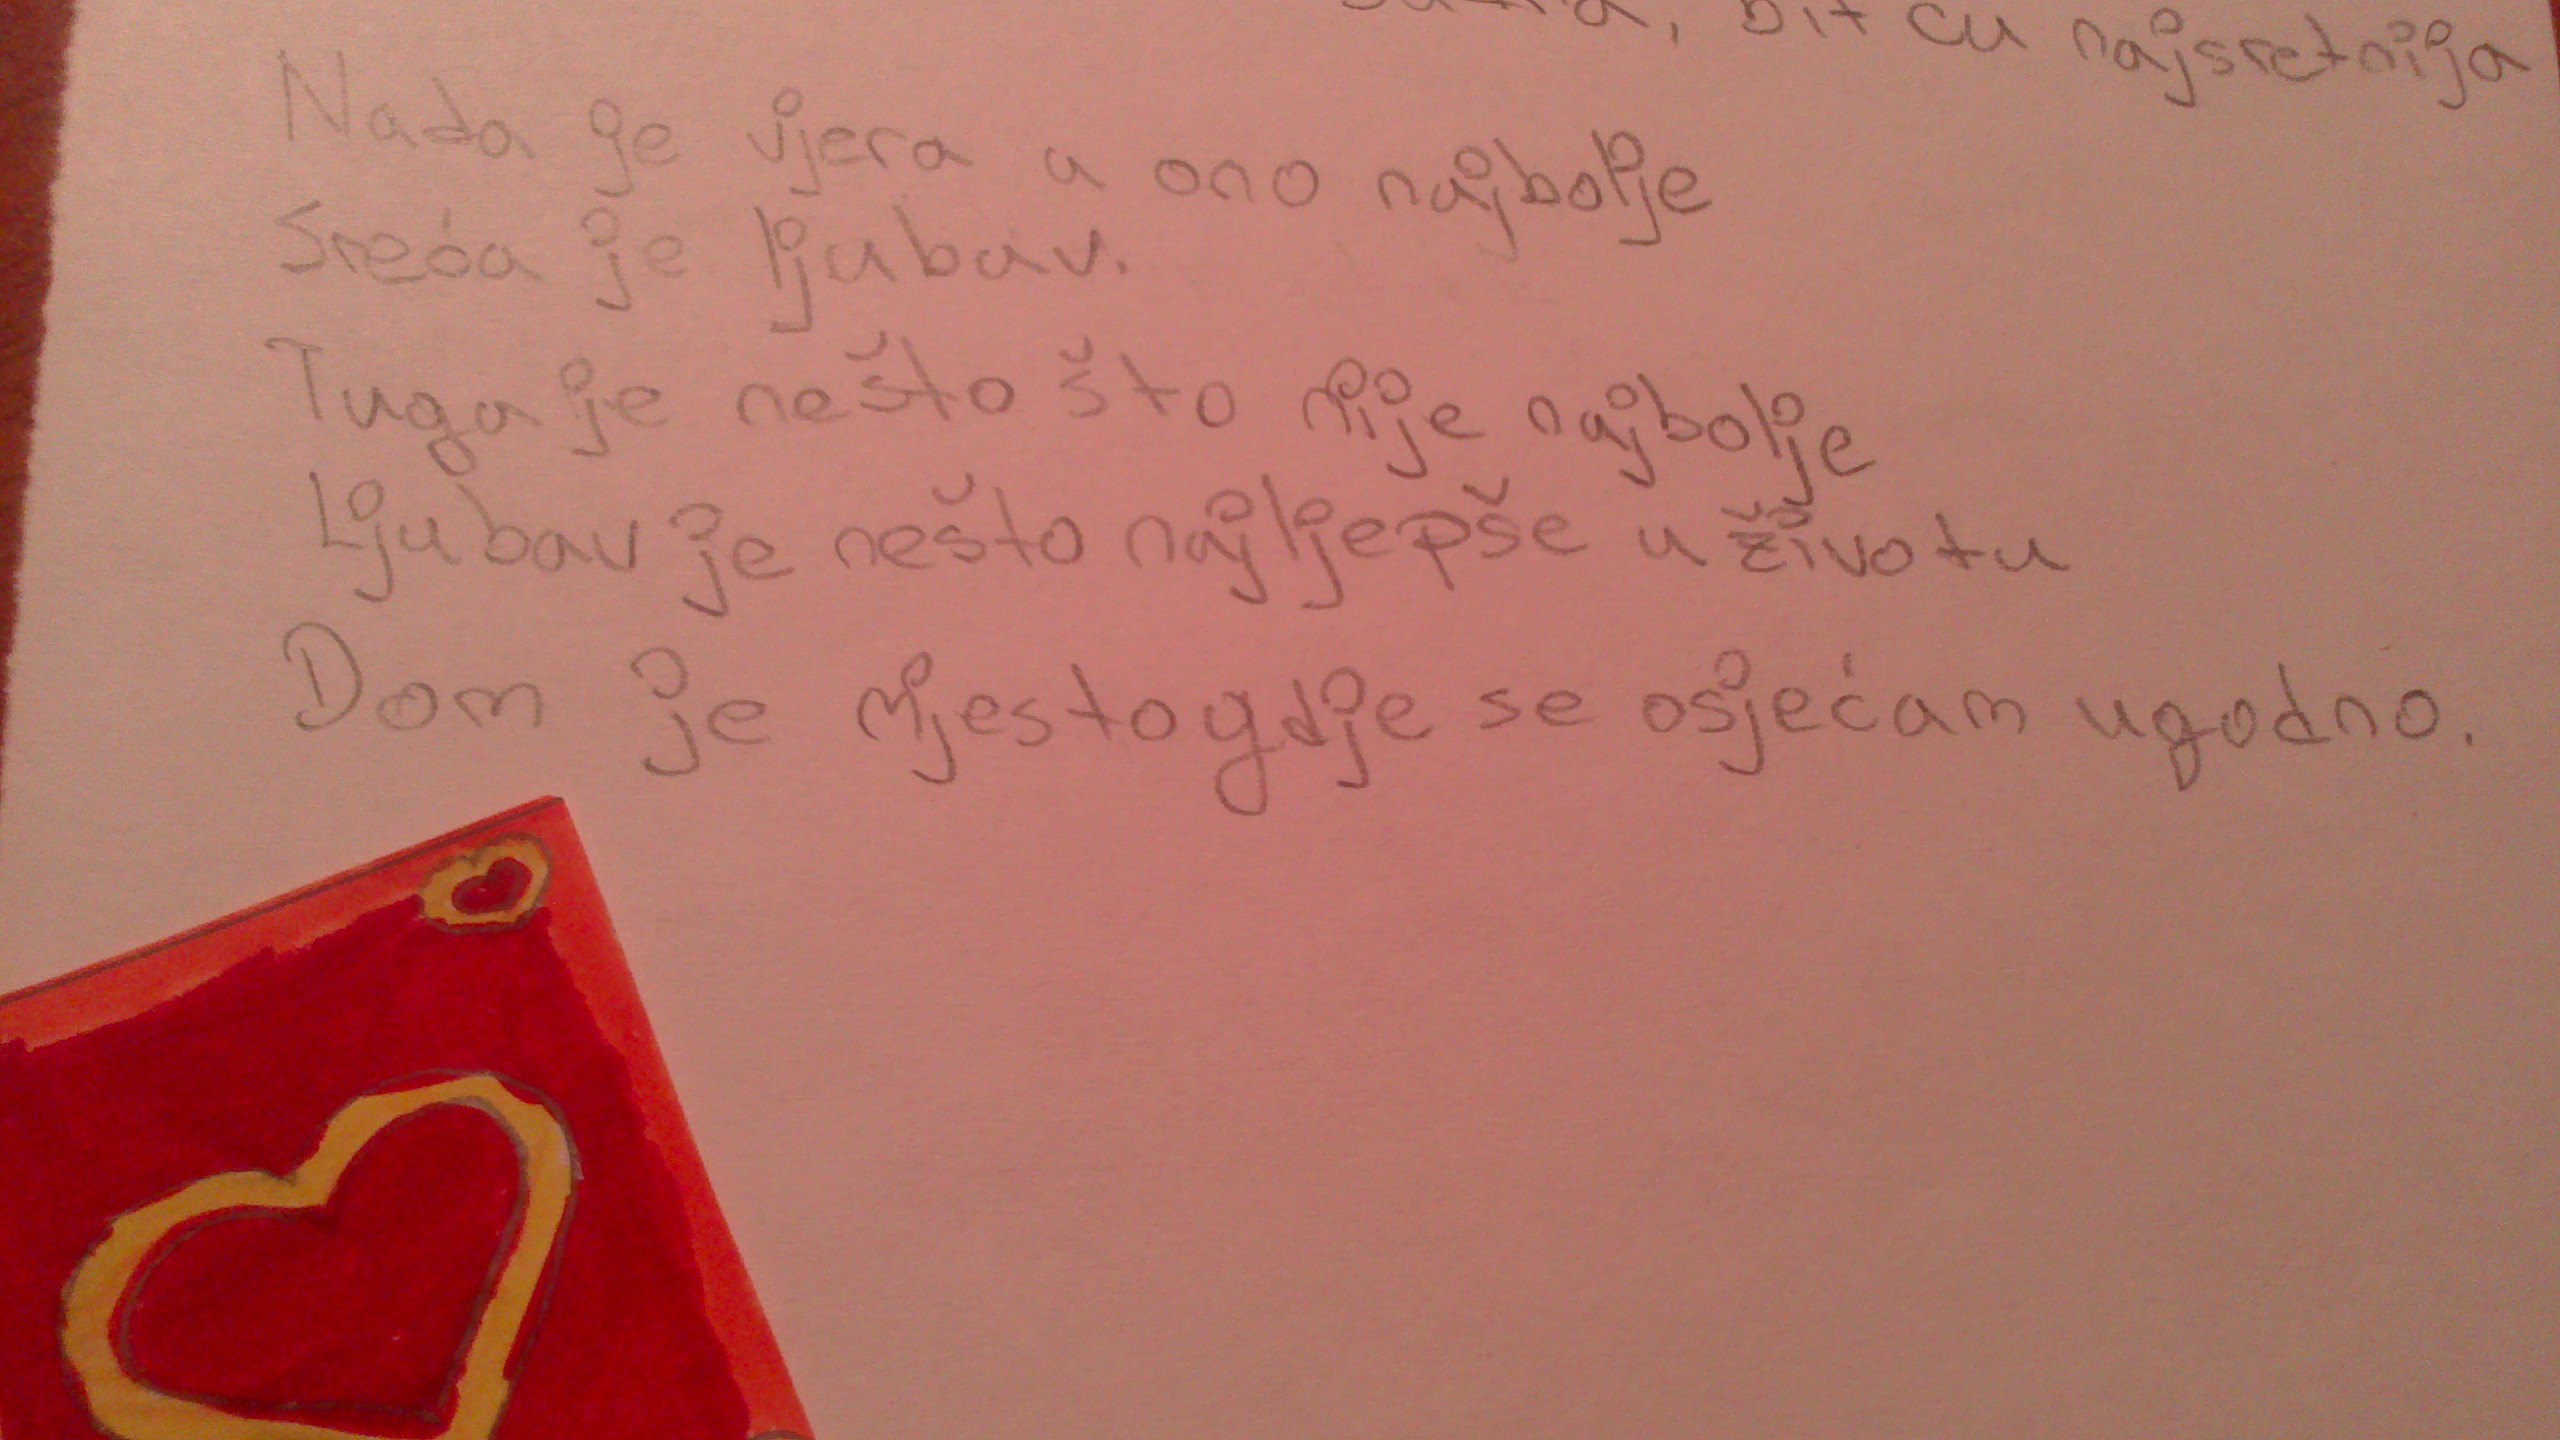 bit ću najsretnija
Nada je vjera u ono najbolje
Sreća je ljubav.
Tuga je nešto što nije najbolje
Ljubav je nešto najljepše u životu
Dom je mjesto gdje se osjećam ugodno.